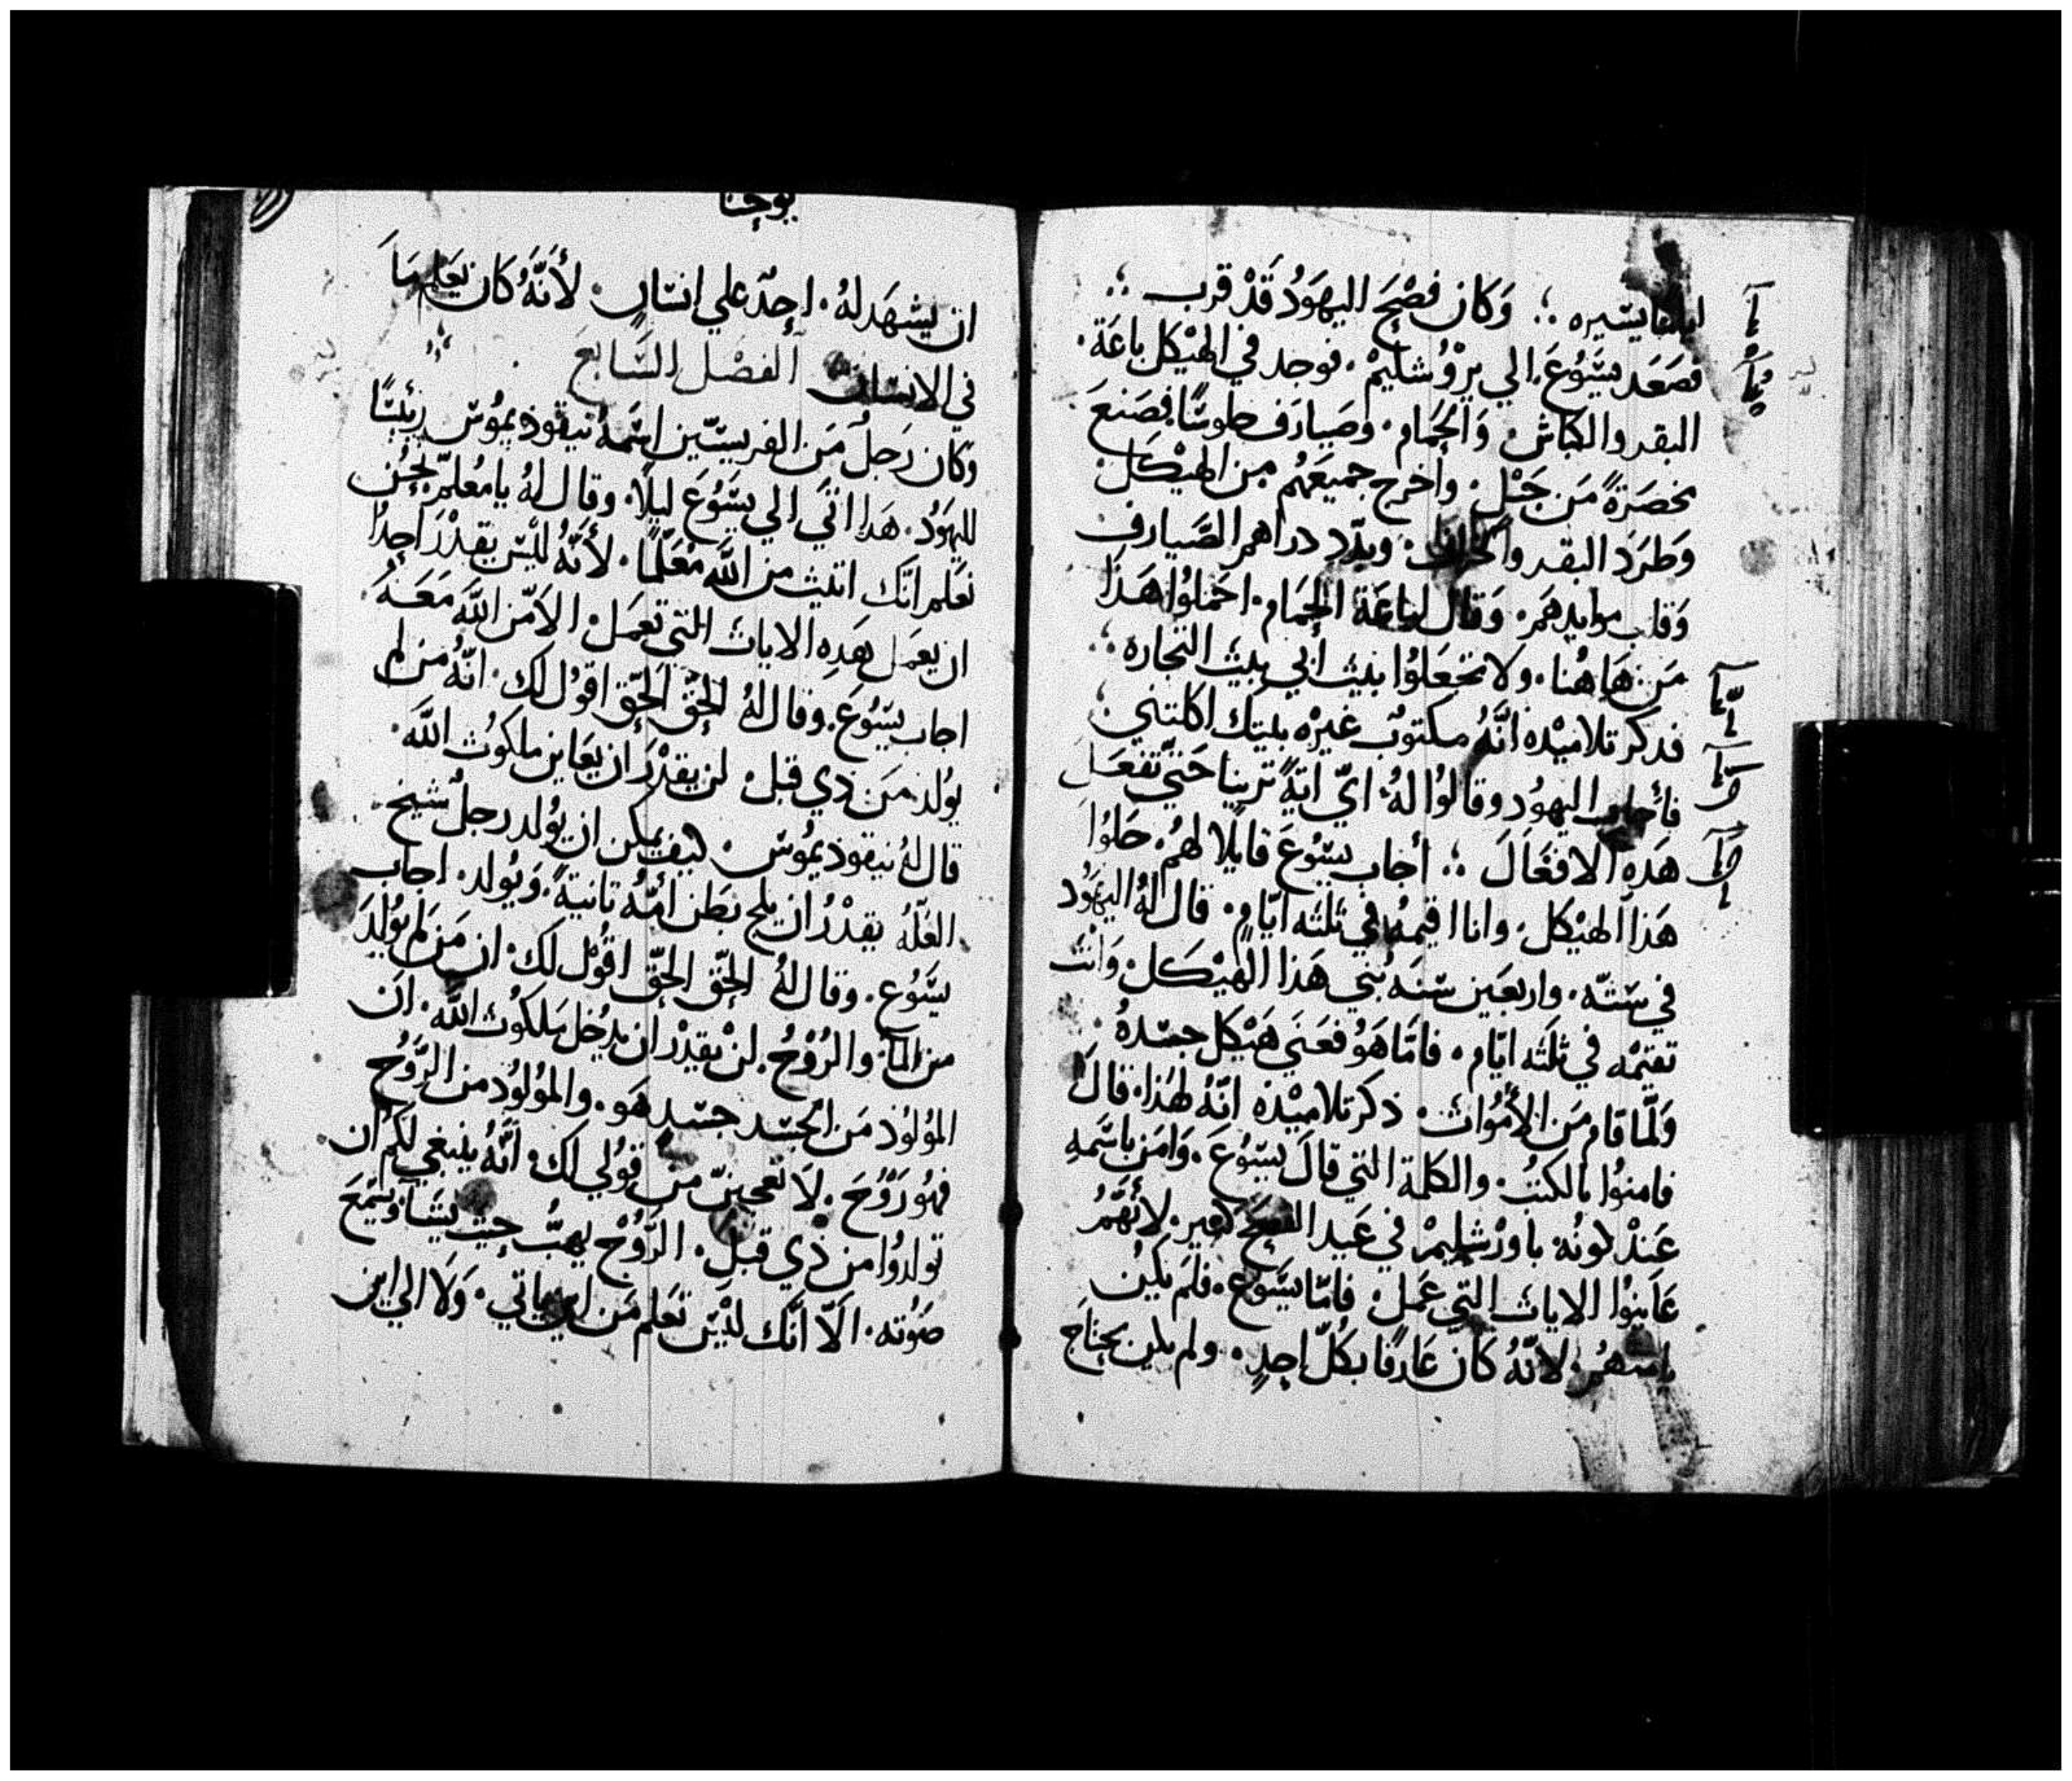 اياما يسيره ؛ وَكان فصْحَ اليهَوُد قَدْ قرب ؛
فصَعَد يسَّوُعَ الي يرْوُشليمْ، فوجد في الهيْكل باعَة،
البقر والكباش، وَالحَمام، وصَيارَف جلوسًا فصَنعَ
مخصَرَةً مَن حَبْل، واخرج جميعَهُم من الهيْكَل
وَطرَدَ البقر والخراف، وبدّد دراهم الصَّيارف
وَقلب موايدهمَ، وَقال لباعَة الحمَام، احملوُا هَذا
مَن هَاهُنا، ولا تجعَلوُا بيْت أبي بيْت التجاره ؛
فدكر تلاميْده انَّهُ مكتوُب غيرْه بيتك اكلتني ؛
فأجاب اليهوُد وقالوُا لهُ، ايّ ايةً ترينا حَتيّ تفعَل
هَدِه الافعَالَ ؛ أجاب يسوُعَ قايلًا لهمُ، حَلوُا
هَذا الهيْكل، وانا اقيمهُ في ثلثه ايّامٍ، قال لهُ اليهوُد
في ستّه، واربعَين سّنَه بُني هَذا الهيْكَل، وَانت
تقيمْه في ثلثَه ايّام، فامّا هَوُ فعَنَي هَيْكل جسّدهُ
وَلَّما قام مَن الأمُوات، ذكر تلاميْذه انّهُ لهَذا، قالَ
فامنوُا بالكتبُ، والكلمة التي قالَ يسّوُعَ، وَامَن باسّمهِ
عَندْ كونُه باورْشليمْ في عَيد الفصحَ كثير، لأنَهَّمُ
عَاينوُا الايات التي عَمل، فامّا يسَّوُع، فلَم يكُن
يامنهُم، لانّهُ كان عَارفًا بكُلّ احدٍ، ولم يكن يحتاج
يوحنا
ان يشهَد لهُ، احدٌ علي انسَانٍ، لأنَّهُ كان يعَلم مَا
في الانسَان، الفصْل السَّابعَ
وَكان رَجلُ مَن الفريسّيين اسّمهُ نيقوذيموُسّ ريئيسًّا
لليهَوُد، هَذا اتَي الي يسَّوُعَ ليلًا، وقال لهُ يا مُعلّم نحُن
نعَلم انّك اتيت من اللَّه مُعَلّمًا، لأنَّهُ ليّس يقدْرَ احدًا
ان يعَمل هَدِه الايات التّي تعمَل، الا مَّن اللَّه مَعَهُ،
اجاب يسّوُعَ، وقال لهُ الحقّ الحقّ اقوُل لك، انّهُ من لم
يوُلد مَن ذي قبل، لن يقدْرَ ان يعَاين ملكوُت اللَّه،
قال لهُ نيقوذيموُسّ، كيف يمكن ان يوُلد رجلُ شيخ
العَلّهُ يقدْرُ ان يلج بطَن امُّه تانيةً، وَيوُلد، اجاب
يسّوُع، وقال لهُ الحقّ الحقّ اقوُل لك، ان مَن لم يوُلدَ
من المآ، والرُوْحُ، لنْ يقدْر ان يدُخل مَلكوُت اللَّه، ان
الموُلوُد مَن الجَسّد جسّد هَو، والموُلوُد من الرَّوُح
فهوُ رَوُحَ، لَا تعجبنّ من قوُلي لك، انَّهُ ينبغي لكم ان
توُلدوُا من ذي قبلِ، الرَّوُحْ يهبُّ حيث يشآ، وَيسّمَعَ
صَوُته، الَا انَّك ليْسّ تعَلم مَن اين ياتي، وَلَا الي اين